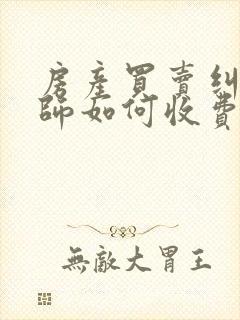 房產買賣糾
師如何收費
無敵大胃王